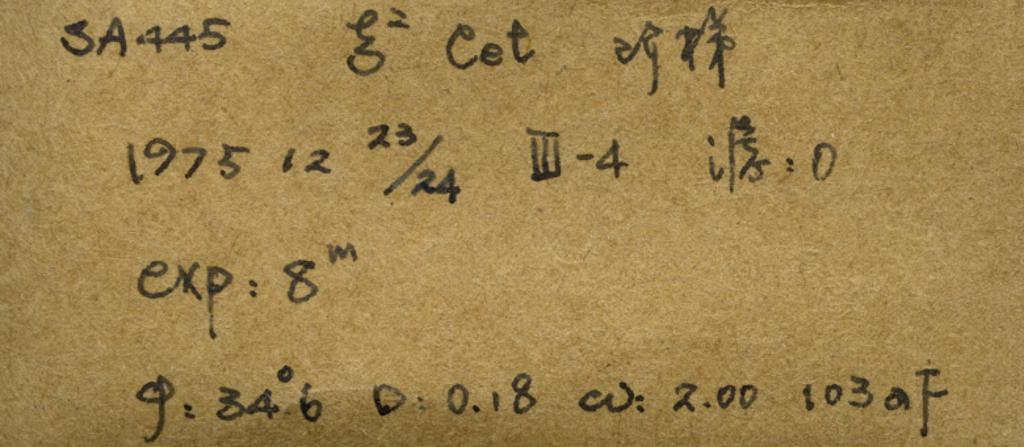 SA445 ξ² Cet 阶梯
1975 12 23/24 III-4 滤:0
exp: 8ᵐ
φ: 34°6 D: 0.18 ω: 2.00 103aF